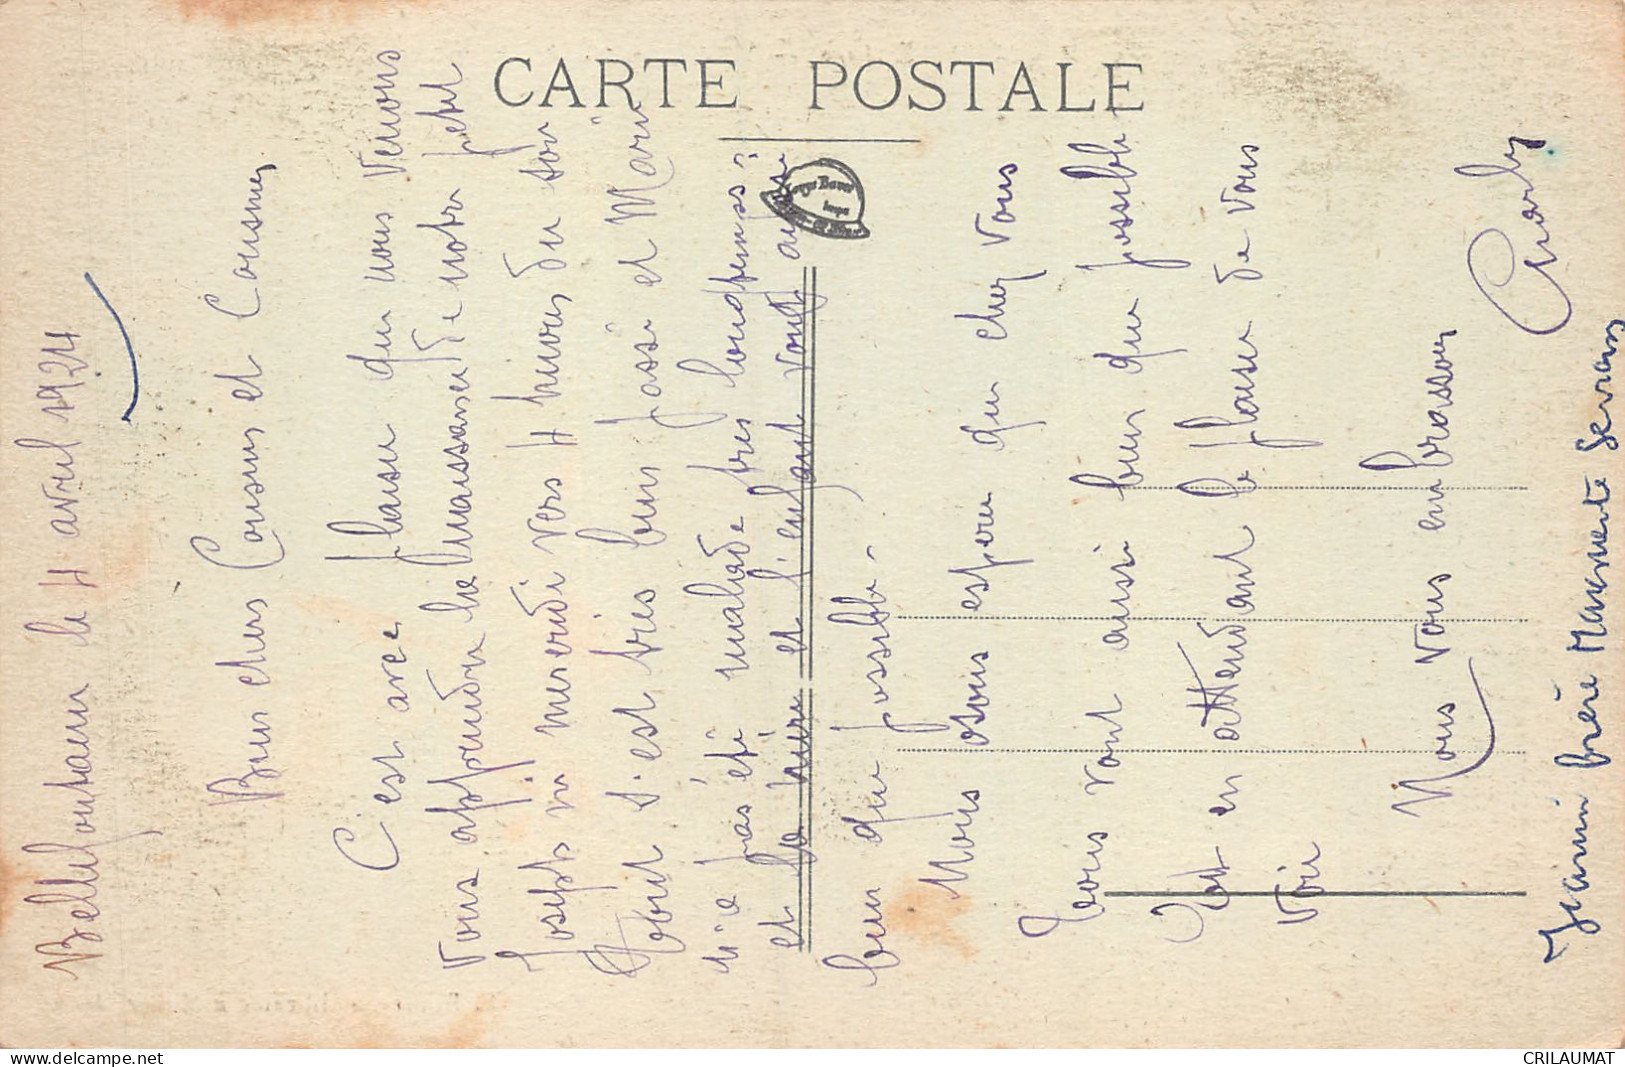 CARTE POSTALE
Bellefontaine le 4 avril 1924
Bien chers Cousins et Cousines
C'est avec plaisir que nous venons
vous apprendre la naissance de notre petit
Joseph né mercredi vers 4 heures du soir
Tout s'est très bien passé et Marie
n'a pas été malade très longtemps
et la mère et l'enfant vont aussi
bien que possible.
Nous osons espérer que chez vous
Tous vont aussi bien que possible
et en attendant le plaisir de vous
voir
Nous vous embrassons
Charly
frère Marguerite
www.delcampe.net
CRILAUMAT